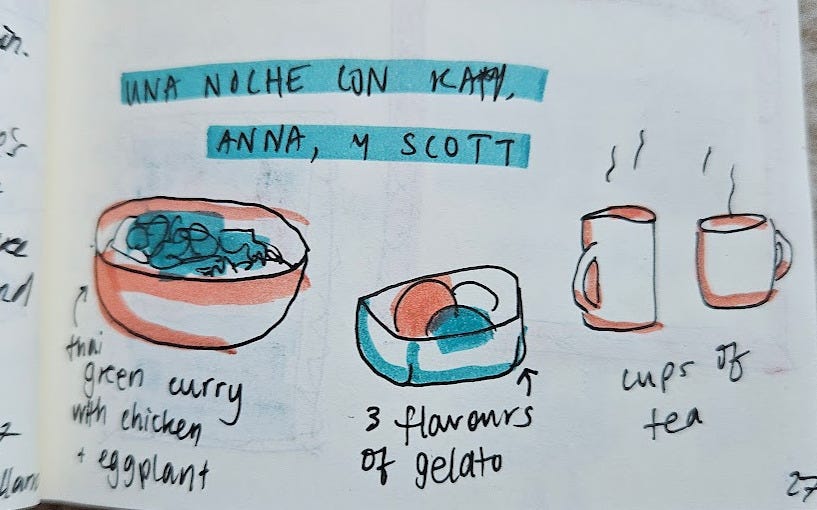 UNA NOCHE CON KATY,
ANNA, Y SCOTT
thai
green curry
with chicken
+ eggplant
3 flavours
of gelato
cups of
tea
27